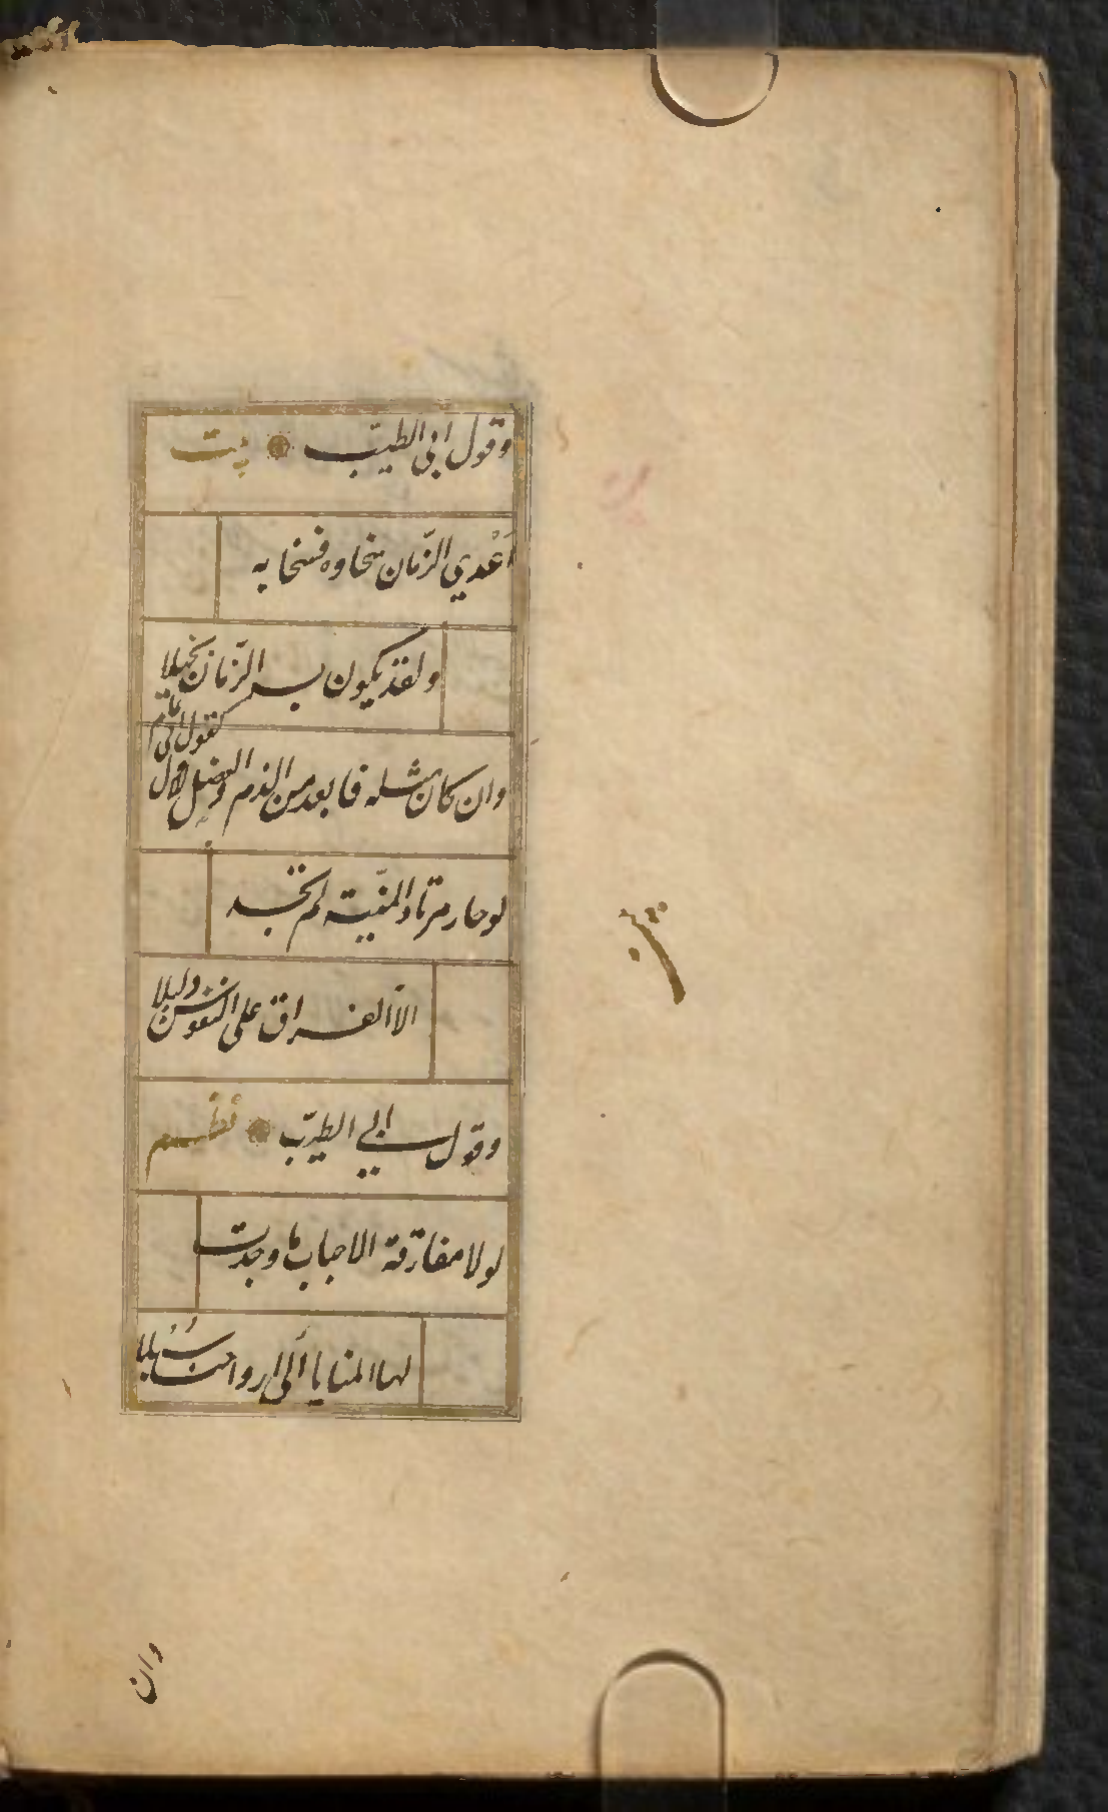 وقول ابی الطیّب بیت
اَعْدي الزّمان سخاوه فسخا به
ولقد یکون به الزّمان بخیلا
وان کان مثله فابعد من الذم والفضل للاول
کقول ابی تمام
لو حار مرتاد المنیّة لم تجد
الّا الفراق علی النفوس دلیلا
وقول ابي الطیّب نظم
لولا مفارقة الاحباب ما وجدت
لها المنایا اُلی ارواحنا سُبُلا
وان